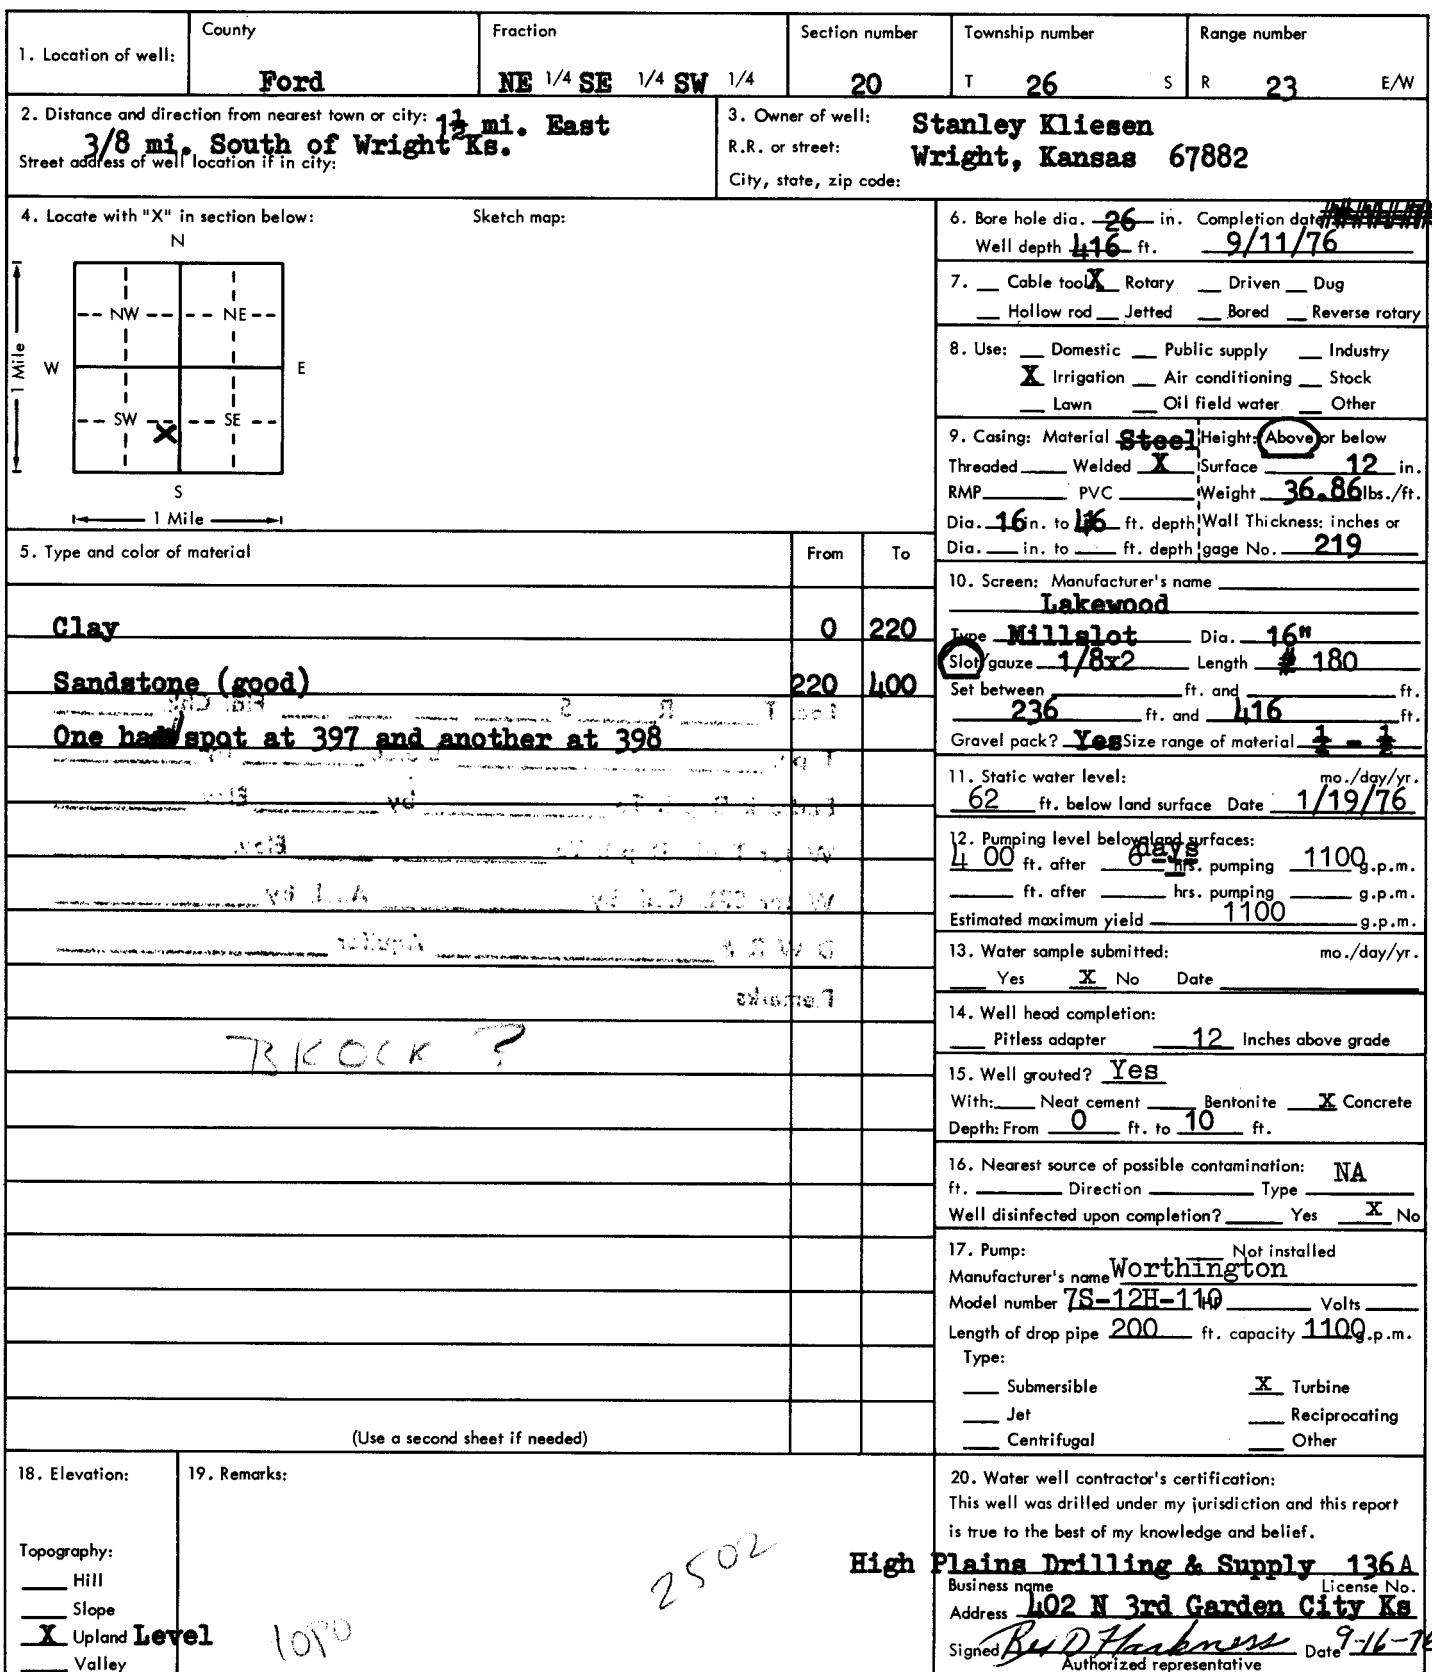 County Fraction Section number Township number Range number
1. Location of well:
Ford NE 1/4 SE 1/4 SW 1/4 20 T 26 S R 23 E/W
2. Distance and direction from nearest town or city: 1½ mi. East
3/8 mi. South of Wright Ks.
Street address of well location if in city:
3. Owner of well: Stanley Kliesen
R.R. or street: Wright, Kansas 67882
City, state, zip code:
4. Locate with "X" in section below: Sketch map:
N
NW NE
W E
1 Mile
SW X SE
S
1 Mile
5. Type and color of material From To
Clay 0 220
Sandstone (good) 220 400
One hard spot at 397 and another at 398
Remarks
BROCK ?
(Use a second sheet if needed)
6. Bore hole dia. 26 in. Completion date
Well depth 416 ft. 9/11/76
7. Cable tool X Rotary Driven Dug
Hollow rod Jetted Bored Reverse rotary
8. Use: Domestic Public supply Industry
X Irrigation Air conditioning Stock
Lawn Oil field water Other
9. Casing: Material Steel Height: Above or below
Threaded Welded X Surface 12 in.
RMP PVC Weight 36.86 lbs./ft.
Dia. 16 in. to 416 ft. depth Wall Thickness: inches or
Dia. in. to ft. depth gage No. 219
10. Screen: Manufacturer's name
Lakewood
Type Millslot Dia. 16"
Slot/gauze 1/8x2 Length 180
Set between ft. and ft.
236 ft. and 416 ft.
Gravel pack? Yes Size range of material ¼ - ½
11. Static water level: mo./day/yr.
62 ft. below land surface Date 1/19/76
12. Pumping level below land surfaces:
400 ft. after 6 days hrs. pumping 1100 g.p.m.
ft. after hrs. pumping g.p.m.
Estimated maximum yield 1100 g.p.m.
13. Water sample submitted: mo./day/yr.
Yes X No Date
14. Well head completion:
Pitless adapter 12 Inches above grade
15. Well grouted? Yes
With: Neat cement Bentonite X Concrete
Depth: From 0 ft. to 10 ft.
16. Nearest source of possible contamination: NA
ft. Direction Type
Well disinfected upon completion? Yes X No
17. Pump: Not installed
Manufacturer's name Worthington
Model number 7S-12H-110 HP Volts
Length of drop pipe 200 ft. capacity 1100 g.p.m.
Type:
Submersible X Turbine
Jet Reciprocating
Centrifugal Other
18. Elevation:
Topography:
Hill
Slope
X Upland Level
Valley
19. Remarks:
2502
20. Water well contractor's certification:
This well was drilled under my jurisdiction and this report
is true to the best of my knowledge and belief.
High Plains Drilling & Supply 136A
Business name License No.
Address 402 N 3rd Garden City Ks
Signed D Harkness Date 9-16-76
Authorized representative